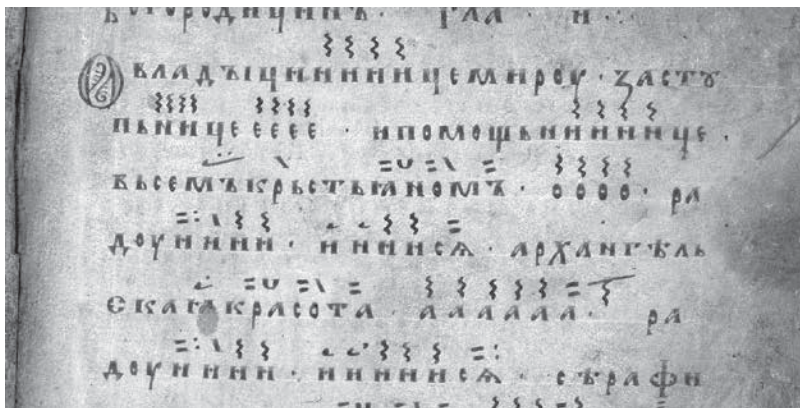 богородицинъ · гла · и ·:
Овладꙑцииииицемироу · застꙋ
пьницеееее · ипомошьниииице ·
вьсемъкрьстьꙗномъ · оооо · ра
доуииии · иииисѧ · архангѣль
скаꙗкрасота · аааааа · ра
доуииии · ииииисѧ · сѣрафи